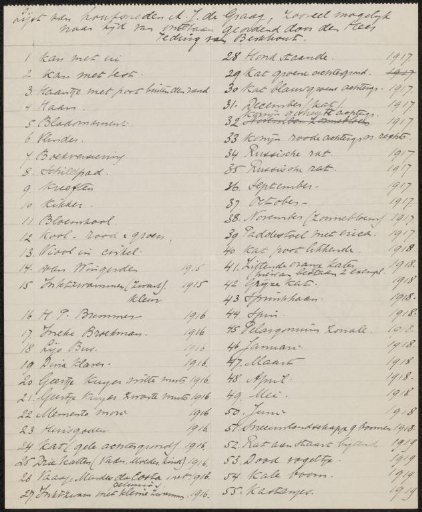 Lijst van houtsneden v. J. de Graag, zooveel mogelijk
naar tijd van ontstaan geordend door den Heer
Teding van Berkhout.
1 Kat met ui
2 Kat met
3 Haantje met poot buiten den rand
4 Haan
5 Bladornament
6 Vlinder
7 Boekversiering
8 Schildpad
9 Kreeften
10 Kikker
11 Bloemkool
12 Kool - rood & groen
13 Viool in cirkel
14 van Wingerden 1915
15 Inktzwammen (zwart) 1915
kleur
16 H P. Bremmer 1916
17 Ineke Brockman 1916
18 1916
19 1916
20 Geertje Kuyer witte muts 1916
21 Geertje Kuyer zwarte muts 1916
22 Memento mori 1916
23 Huisgoden 1916
24 Kat (gele achtergrond) 1916
25 Drie katten (Vader, Moeder, Kind) 1916
26 Mendes da Costa 1916
27 Inktzwam met kleine zwammen 1916
28 Hond staande. 1917
29 Kat groene achtergrond. 1917
30 Kat blauwgroene achtergr. 1917
31. December (kat) 1917
32
33 Konijn roode achtergr. rechts
34 Russische rat. 1917
35 Russische rat. 1917
36. September. 1917
37 October. 1917
38. November (zonnebloem) 1917
39 Paddestoel met erica. 1917
40 Kat poot likkende. 1918
41. 1918
42 Grijze kat. 1918
43 Sprinkhaan 1918
44 Spin 1918
45 Pelargonium zonale 1918
46 Januari 1918
47. Maart 1918
48. April 1918
49. Mei 1918
50. Juni 1918
51 Sneeuwlandschap & boomen 1918
52. Rat aan staart 1919
53. Dood vogeltje 1919
54 Kale boom 1919
55. Kastanjes. 1919